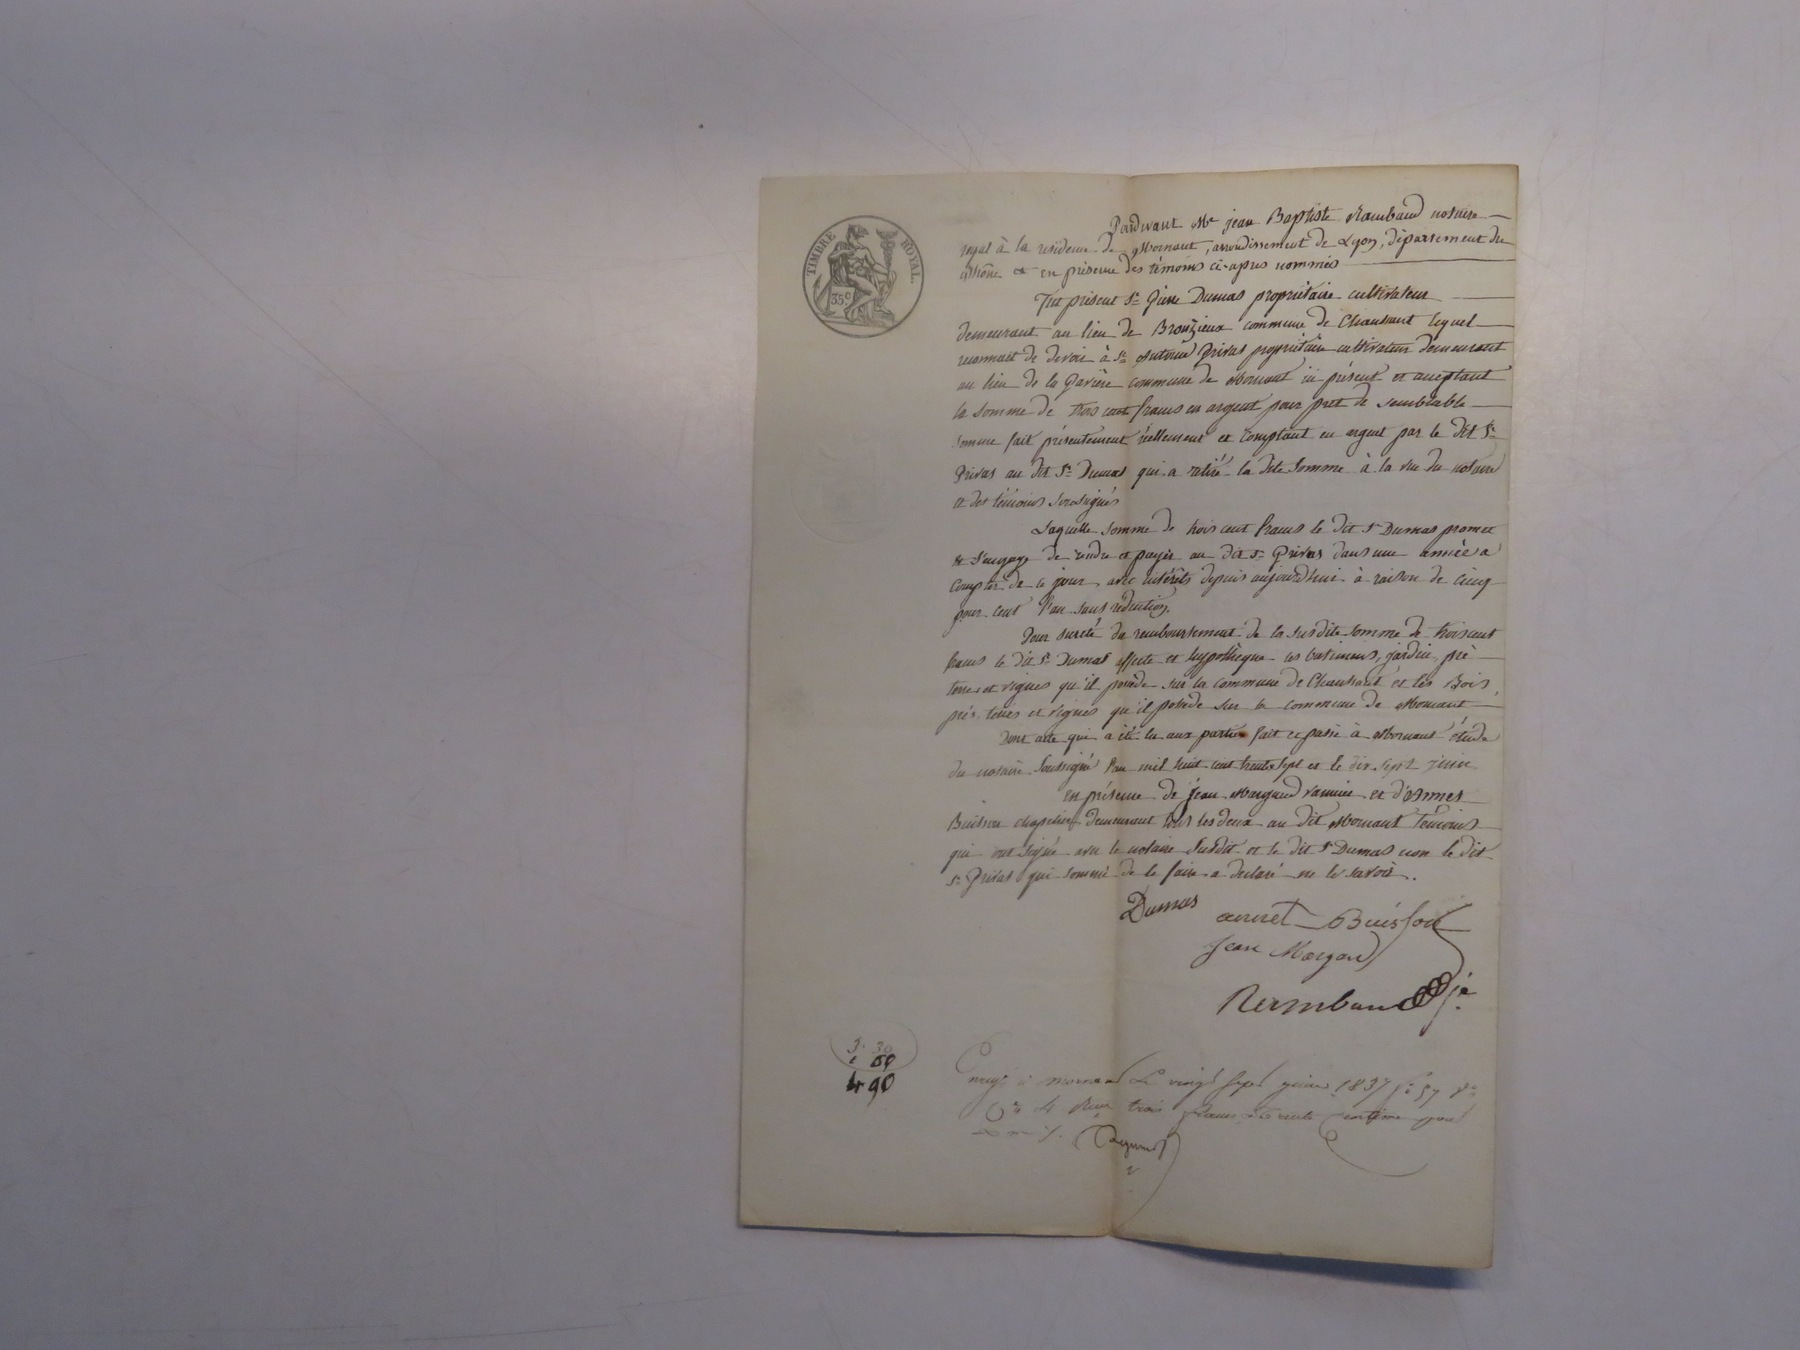 TIMBRE ROYAL.
35c
Pardevant Me jean Baptiste Rambaud notaire
royal à la residence de Mornant, arrondissement de Lyon, département du
Rhône et en présence des témoins ci-après nommés
Fut présent Sr Pierre Dumas propriétaire cultivateur
demeurant au lieu de commune de Chaussant lequel
reconnait de devoir à Sr Antoine Privas propriétaire cultivateur demeurant
au lieu de la commune de Mornant ici présent et acceptant
la somme de trois cent francs en argent pour pret de semblable
somme fait présentement réellement et comptant en argent par le dit Sr
Privas au dit Sr Dumas qui a retiré la dite somme à la vue du notaire
et des témoins soussignés
Laquelle somme de trois cent francs le dit Sr Dumas promet
& s'engage de rendre et payer au dit Sr Privas dans une année a
compter de ce jour avec intérêts depuis aujourd'hui à raison de cinq
pour cent l'an sans réduction.
Pour sureté du remboursement de la susdite somme de trois cent
francs le dit Sr Dumas affecte et hypothèque les batimens, jardin, pré
terres et vignes qu'il possède sur la commune de Chaussant et les Bois,
prés, terres et vignes qu'il possède sur la commune de Mornant
Dont acte qui a été lu aux parties fait et passé à Mornant étude
du notaire soussigné l'an mil huit cent trente sept et le dix sept
en présence de jean et d'
Buisson chapelier demeurant tous les deux au dit Mornant témoins
qui ont signé avec le notaire susdit et le dit Sr Dumas non le dit
Sr Privas qui sommé de le faire a déclaré ne le savoir.
Dumas
Buisson
Jean
Rambaud
3. 30
4 90
à mornant Le vingt sept 1837 57
trois francs trente centime